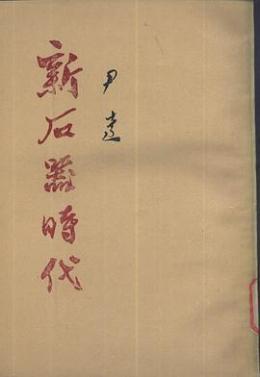 尹達
新石器時代